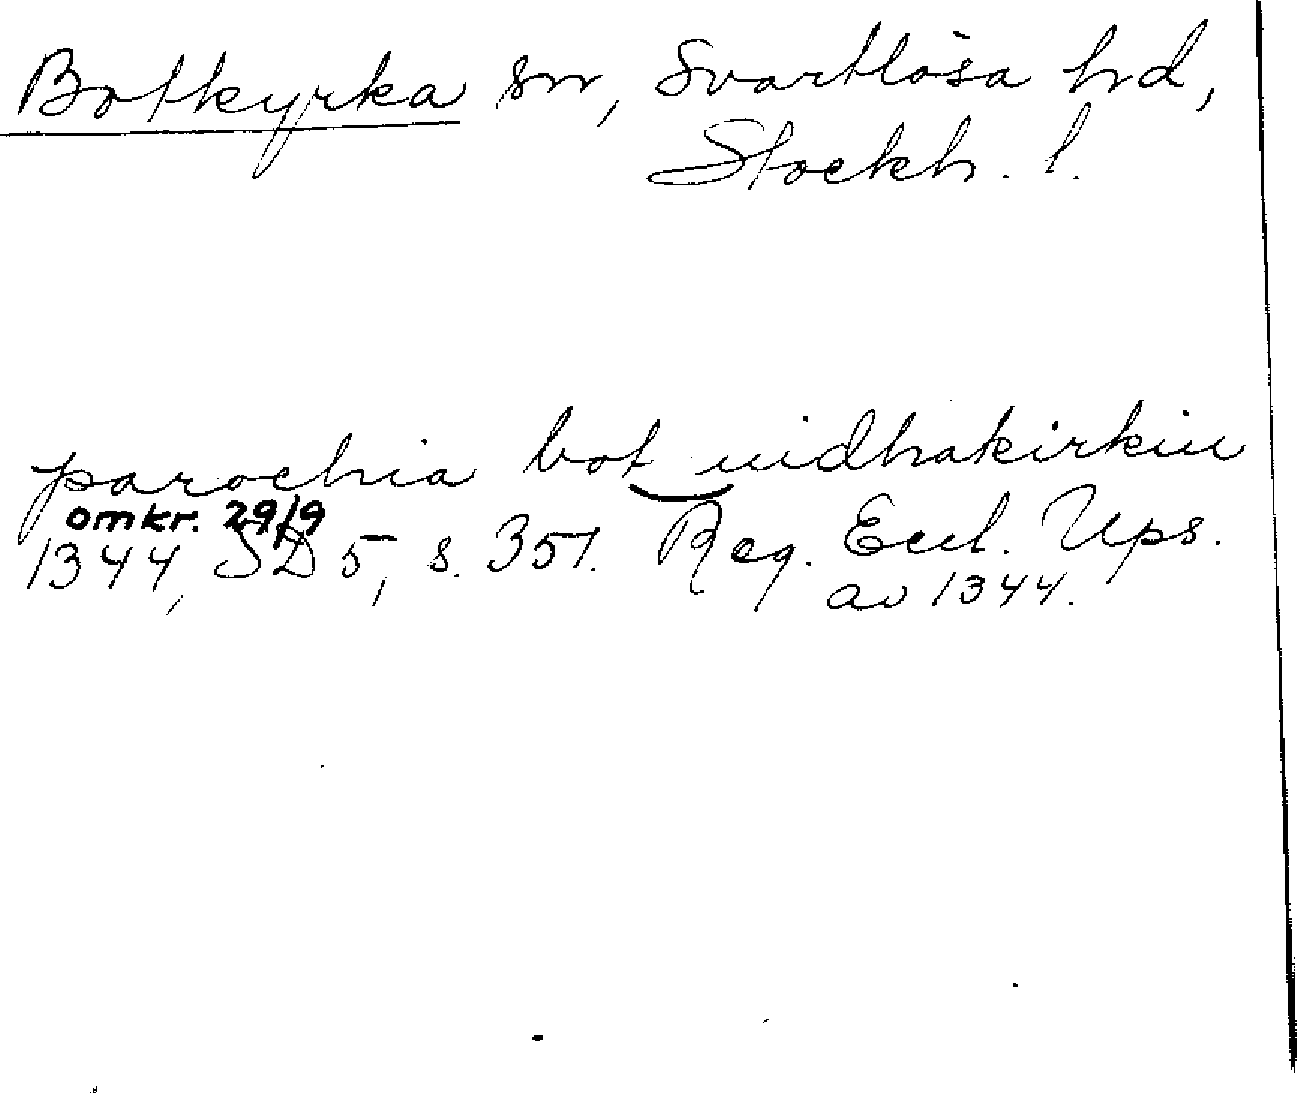 Botkyrka sn, Svartlösa hd,
Stockh. l.
parochia bot uidhakirkiu
omkr. 29/9
1344, SD 5, s. 351. Reg. Eccl. Ups.
av 1344.